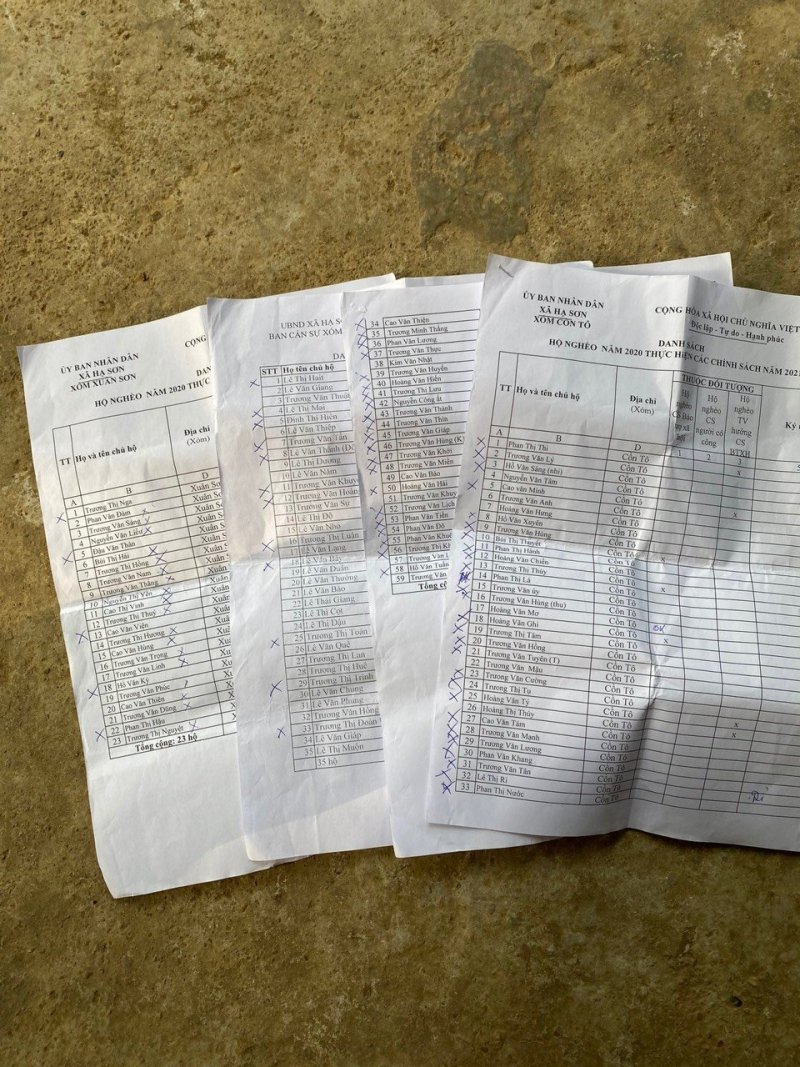 ỦY BAN NHÂN DÂN
XÃ HẠ SƠN
XÓM XUÂN SƠN
CỘNG
HỘ NGHÈO NĂM 2020 THỰC
TT Họ và tên chủ hộ Địa chỉ (Xóm)
A B D
1 Trương Thị Nga Xuân Sơ
2 Phan Văn Đàm Xuân Sơ
3 Trương Văn Sáng Xuân S
4 Nguyễn Văn Liệu Xuân S
5 Đậu Văn Thân Xuân S
6 Bùi Thị Hải Xuân
7 Trương Thị Hồng Xuân
8 Trương Văn Nam Xuân
9 Trương Văn Thắng Xuân
10 Nguyễn Thị Yên Xuân
11 Cao Thị Vinh Xuân
12 Trương Thị Thuý Xuân
13 Cao Văn Viện Xuân
14 Trương Thị Hương Xuân
15 Cao Văn Hùng Xuân
16 Trương Văn Trọng Xuân
17 Trương Văn Linh Xuân
18 Hồ Văn Kỳ Xuâ
19 Trương Văn Phúc Xuâ
20 Cao Văn Thiên Xuâ
21 Trương Văn Dũng Xuâ
22 Phan Thị Hậu Xuâ
23 Trương Thị Nguyệt Xu
Tổng cộng: 23 hộ
UBND XÃ HẠ SƠ
BAN CÁN SỰ XÓM
DA
STT Họ tên chủ hộ
1 Lê Thị Hait
2 Lê Văn Giang
3 Trương Văn Thuật
4 Lê Thị Mai
5 Đinh Thị Hiền
6 Lê Văn Thiệp
7 Trương Văn Tân
8 Lê Văn Thành (Đ
9 Lê Thị Dương
10 Lê Văn Năm
11 Trương Văn Khuy
12 Trương Văn Hoàn
13 Trương Văn Sự
14 Lê Thị Độ
15 Lê Văn Nho
16 Trương Thị Luận
17 Lê Văn Lang
18 Lê Văn Bảy
19 Lê Văn Duẩn
20 Lê Văn Thưởng
21 Lê Văn Bảo
22 Lê Thái Giang
23 Lê Thị Cọt
24 Lê Thị Dậu
25 Trương Thị Toàn
26 Lê Văn Quê
27 Trương Thị Lan
28 Trương Thị Huê
29 Trương Thị Trinh
30 Lê Văn Chung
31 Lê Văn Phung
32 Trương Văn Hồng
33 Trương Thị Đoàn
34 Lê Văn Giáp
35 Lê Thị Muộn
35 hộ
34 Cao Văn Thiện
35 Trương Minh Thăng
36 Phan Văn Lương
37 Trương Văn Thực
38 Kim Văn Nhật
39 Trương Văn Huyến
40 Hoàng Văn Hiến
41 Trương Thị Lưu
42 Nguyễn Công ất
43 Trương Văn Thành
44 Trương Văn Thìn
45 Trương Văn Giáp
46 Trương Văn Hùng (K
47 Trương Văn Khởi
48 Trương Văn Miền
49 Cao Văn Bảo
50 Hoàng Văn Hải
51 Trương Văn Khuy
52 Trương Văn Lịch
53 Phan Văn Tiến
54 Phan Văn Đô
55 Phan Văn Khuê
56 Trương Thị K
57 Trương Văn L
58 Hồ Văn Tuấn
59 Trương Văn
Tổng cộ
ỦY BAN NHÂN DÂN
XÃ HẠ SƠN
XÓM CỒN TÔ
CỘNG HÒA XÃ HỘI CHỦ NGHĨA VIỆT
Độc lập - Tự do - Hạnh phúc
DANH SÁCH
HỘ NGHÈO NĂM 2020 THỰC HIỆN CÁC CHÍNH SÁCH NĂM 202
THUỘC ĐỐI TƯỢNG
TT Họ và tên chủ hộ Địa chỉ (Xóm) Hộ nghèo CS Bảo trợ xã hội Hộ nghèo CS người có công Hộ nghèo TV hưởng CS BTXH Ký
A B D 1 2 3 5
1 Phan Thị Thi Cồn Tô
2 Trương Văn Lý Cồn Tô
3 Hồ Văn Sáng (nhi) Cồn Tô x
4 Nguyễn Văn Tâm Cồn Tô
5 Cao văn Minh Cồn Tô
6 Trương Văn Anh Cồn Tô x
7 Hoàng Văn Hưng Cồn Tô
8 Hồ Văn Xuyên Cồn Tô
9 Trương Văn Hùng Cồn Tô
10 Bùi Thị Thuyết Cồn Tô
11 Phan Thị Hành Cồn Tô x
12 Hoàng Văn Chiến Cồn Tô
13 Trương Thị Thủy Cồn Tô x
14 Phan Thị Lá Cồn Tô
15 Trương Văn úy Cồn Tô
16 Trương Văn Hùng (thu) Cồn Tô OK
17 Hoàng Văn Mơ Cồn Tô x
18 Hoàng Văn Ghi Cồn Tô
19 Trương Thị Tâm Cồn Tô x
20 Hoàng Văn Hùng Cồn Tô
21 Trương Văn Tuyên (T) Cồn Tô
22 Trương Văn Mậu Cồn Tô
23 Trương Văn Cường Cồn Tô
24 Trương Thị Tu Cồn Tô x
25 Hoàng Văn Tý Cồn Tô x
26 Hoàng Thị Thúy Cồn Tô
27 Cao Văn Tám Cồn Tô
28 Trương Văn Mạnh Cồn Tô
29 Trương Văn Lương Cồn Tô
30 Phan Văn Khang Cồn Tô
31 Trương Văn Tân Cồn Tô
32 Lê Thị Rỉ Cồn Tô
33 Phan Thị Nước Cồn Tô